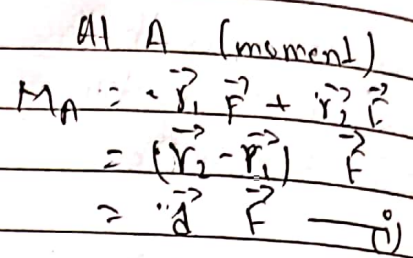 At A (moment)
M_A = -r⃗₁ F⃗ + r⃗₂ F⃗
= (r⃗₂ - r⃗₁) F⃗
= d⃗ F⃗ — (i)